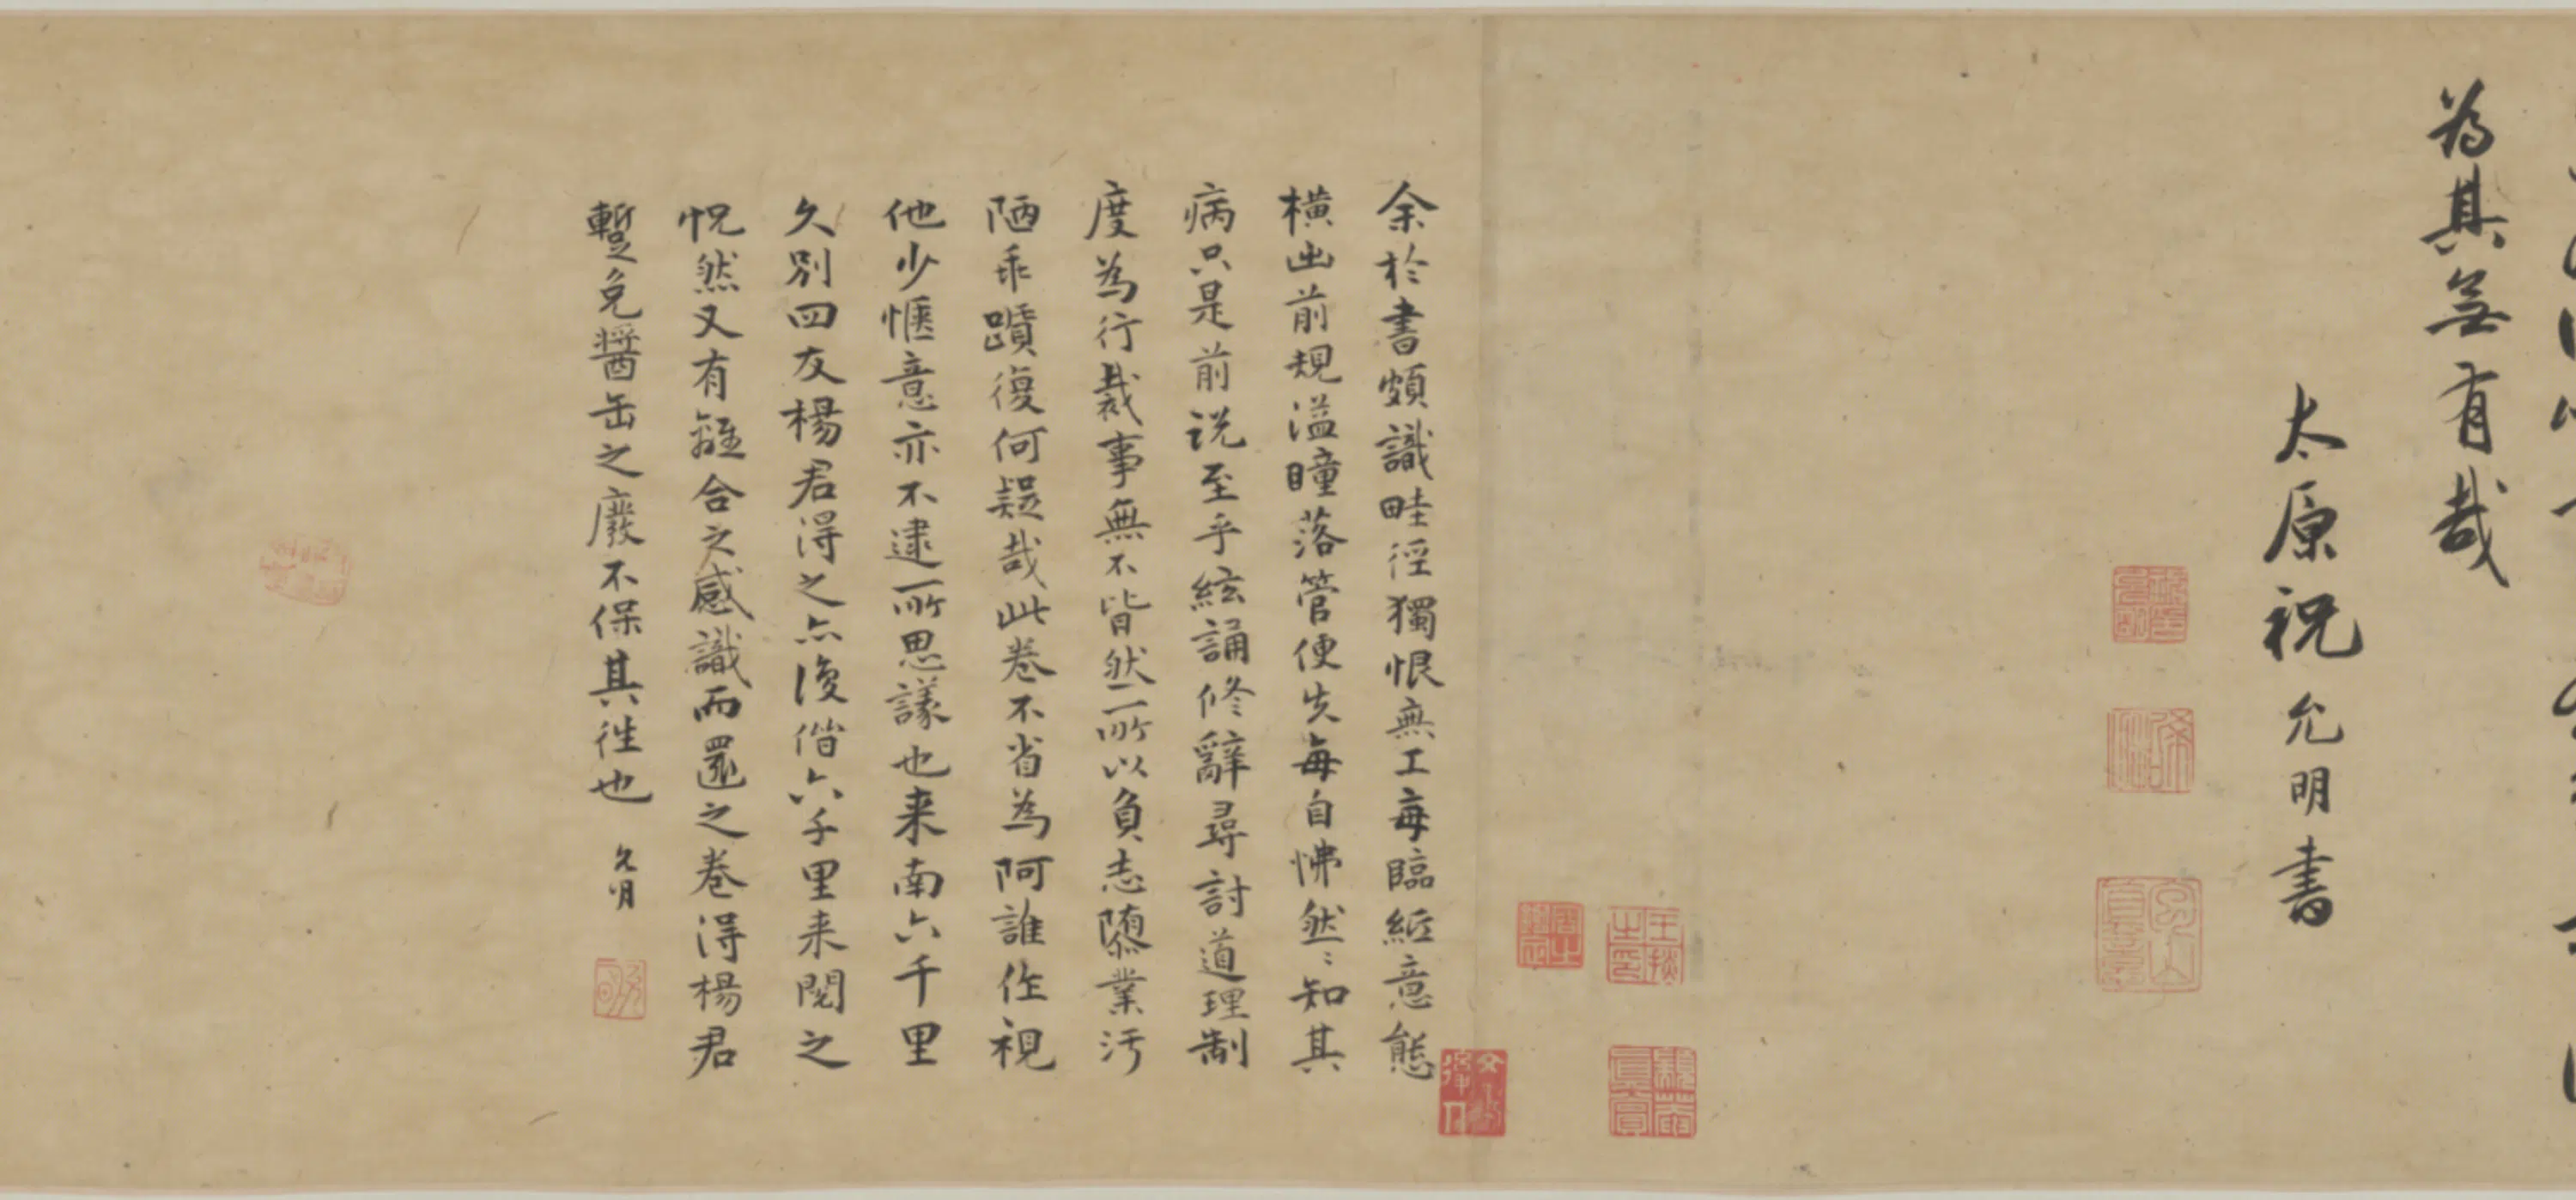 為其無有哉
太原祝允明書
余於書頗識畦徑獨恨無工每臨紙意態
橫出前規溢瞳落管便失每自怫然〻知其
病只是前說至乎絃誦修辭尋討道理制
度為行裁事無不皆然所以負志隳業污
陋乖躓復何疑哉此卷不省為阿誰作視
他少愜意亦不逮所思議也來南六千里
久別四友楊君得之亦復偕六千里来閱之
怳然又有離合之感識而還之卷得楊君
蹔免醬缶之廢不保其往也 允明